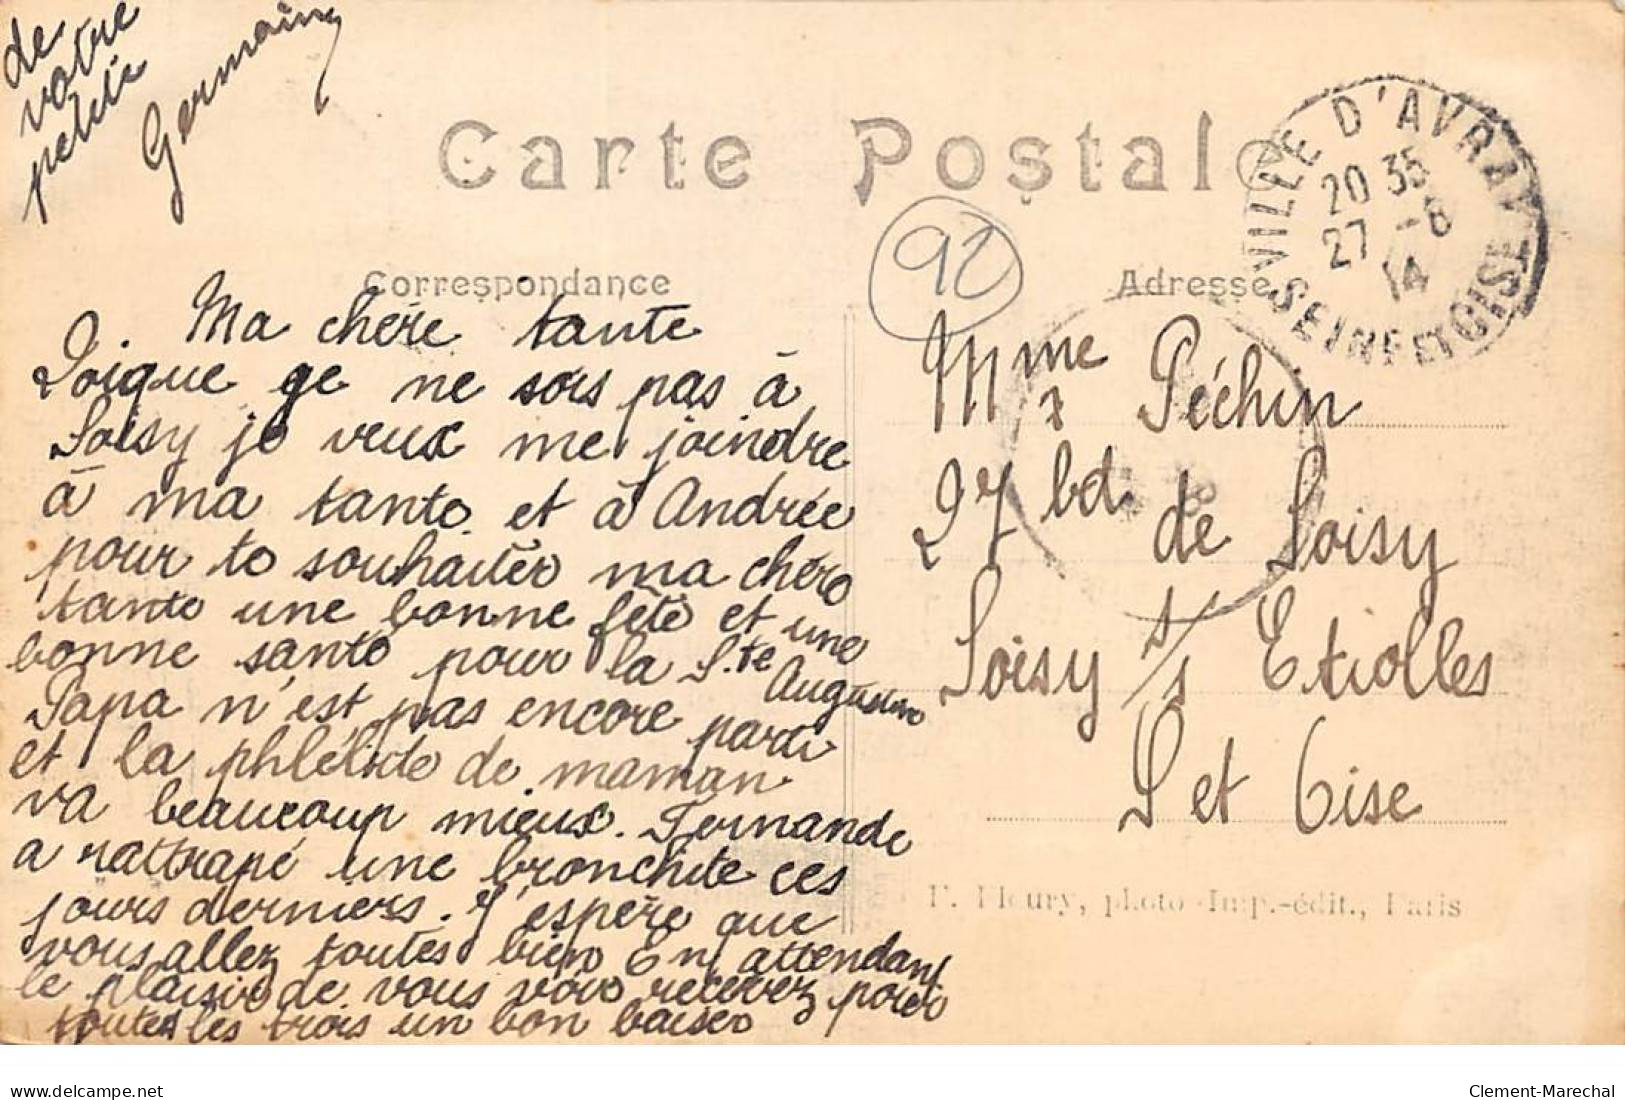 de
votre
petite
Germaine
Carte Postale
VILLE D'AVRAY
20 35
27 -8
14
SEINE ET OISE
92
Correspondance
Adresse
Ma chère tante
Qoique ge ne sois pas à
Soisy je veux me joindre
à ma tante et à Andrée
pour te souhaiter ma chère
tante une bonne fête et une
bonne santé pour la Ste
Augustine
Papa n'est pas encore parti
et la phlébite de maman
va beaucoup mieux. Fernande
a rattrapé une bronchite ces
jours derniers. J'espère que
vous allez toutes bien En attendant
le plaisir de vous voir recevez pour
toutes les trois un bon baiser
Mme Péchin
27 bd de Soisy
Soisy s/s Etiolles
S et Oise
F. Fleury, photo-Imp.-édit., Paris
www.delcampe.net
Clement-Marechal